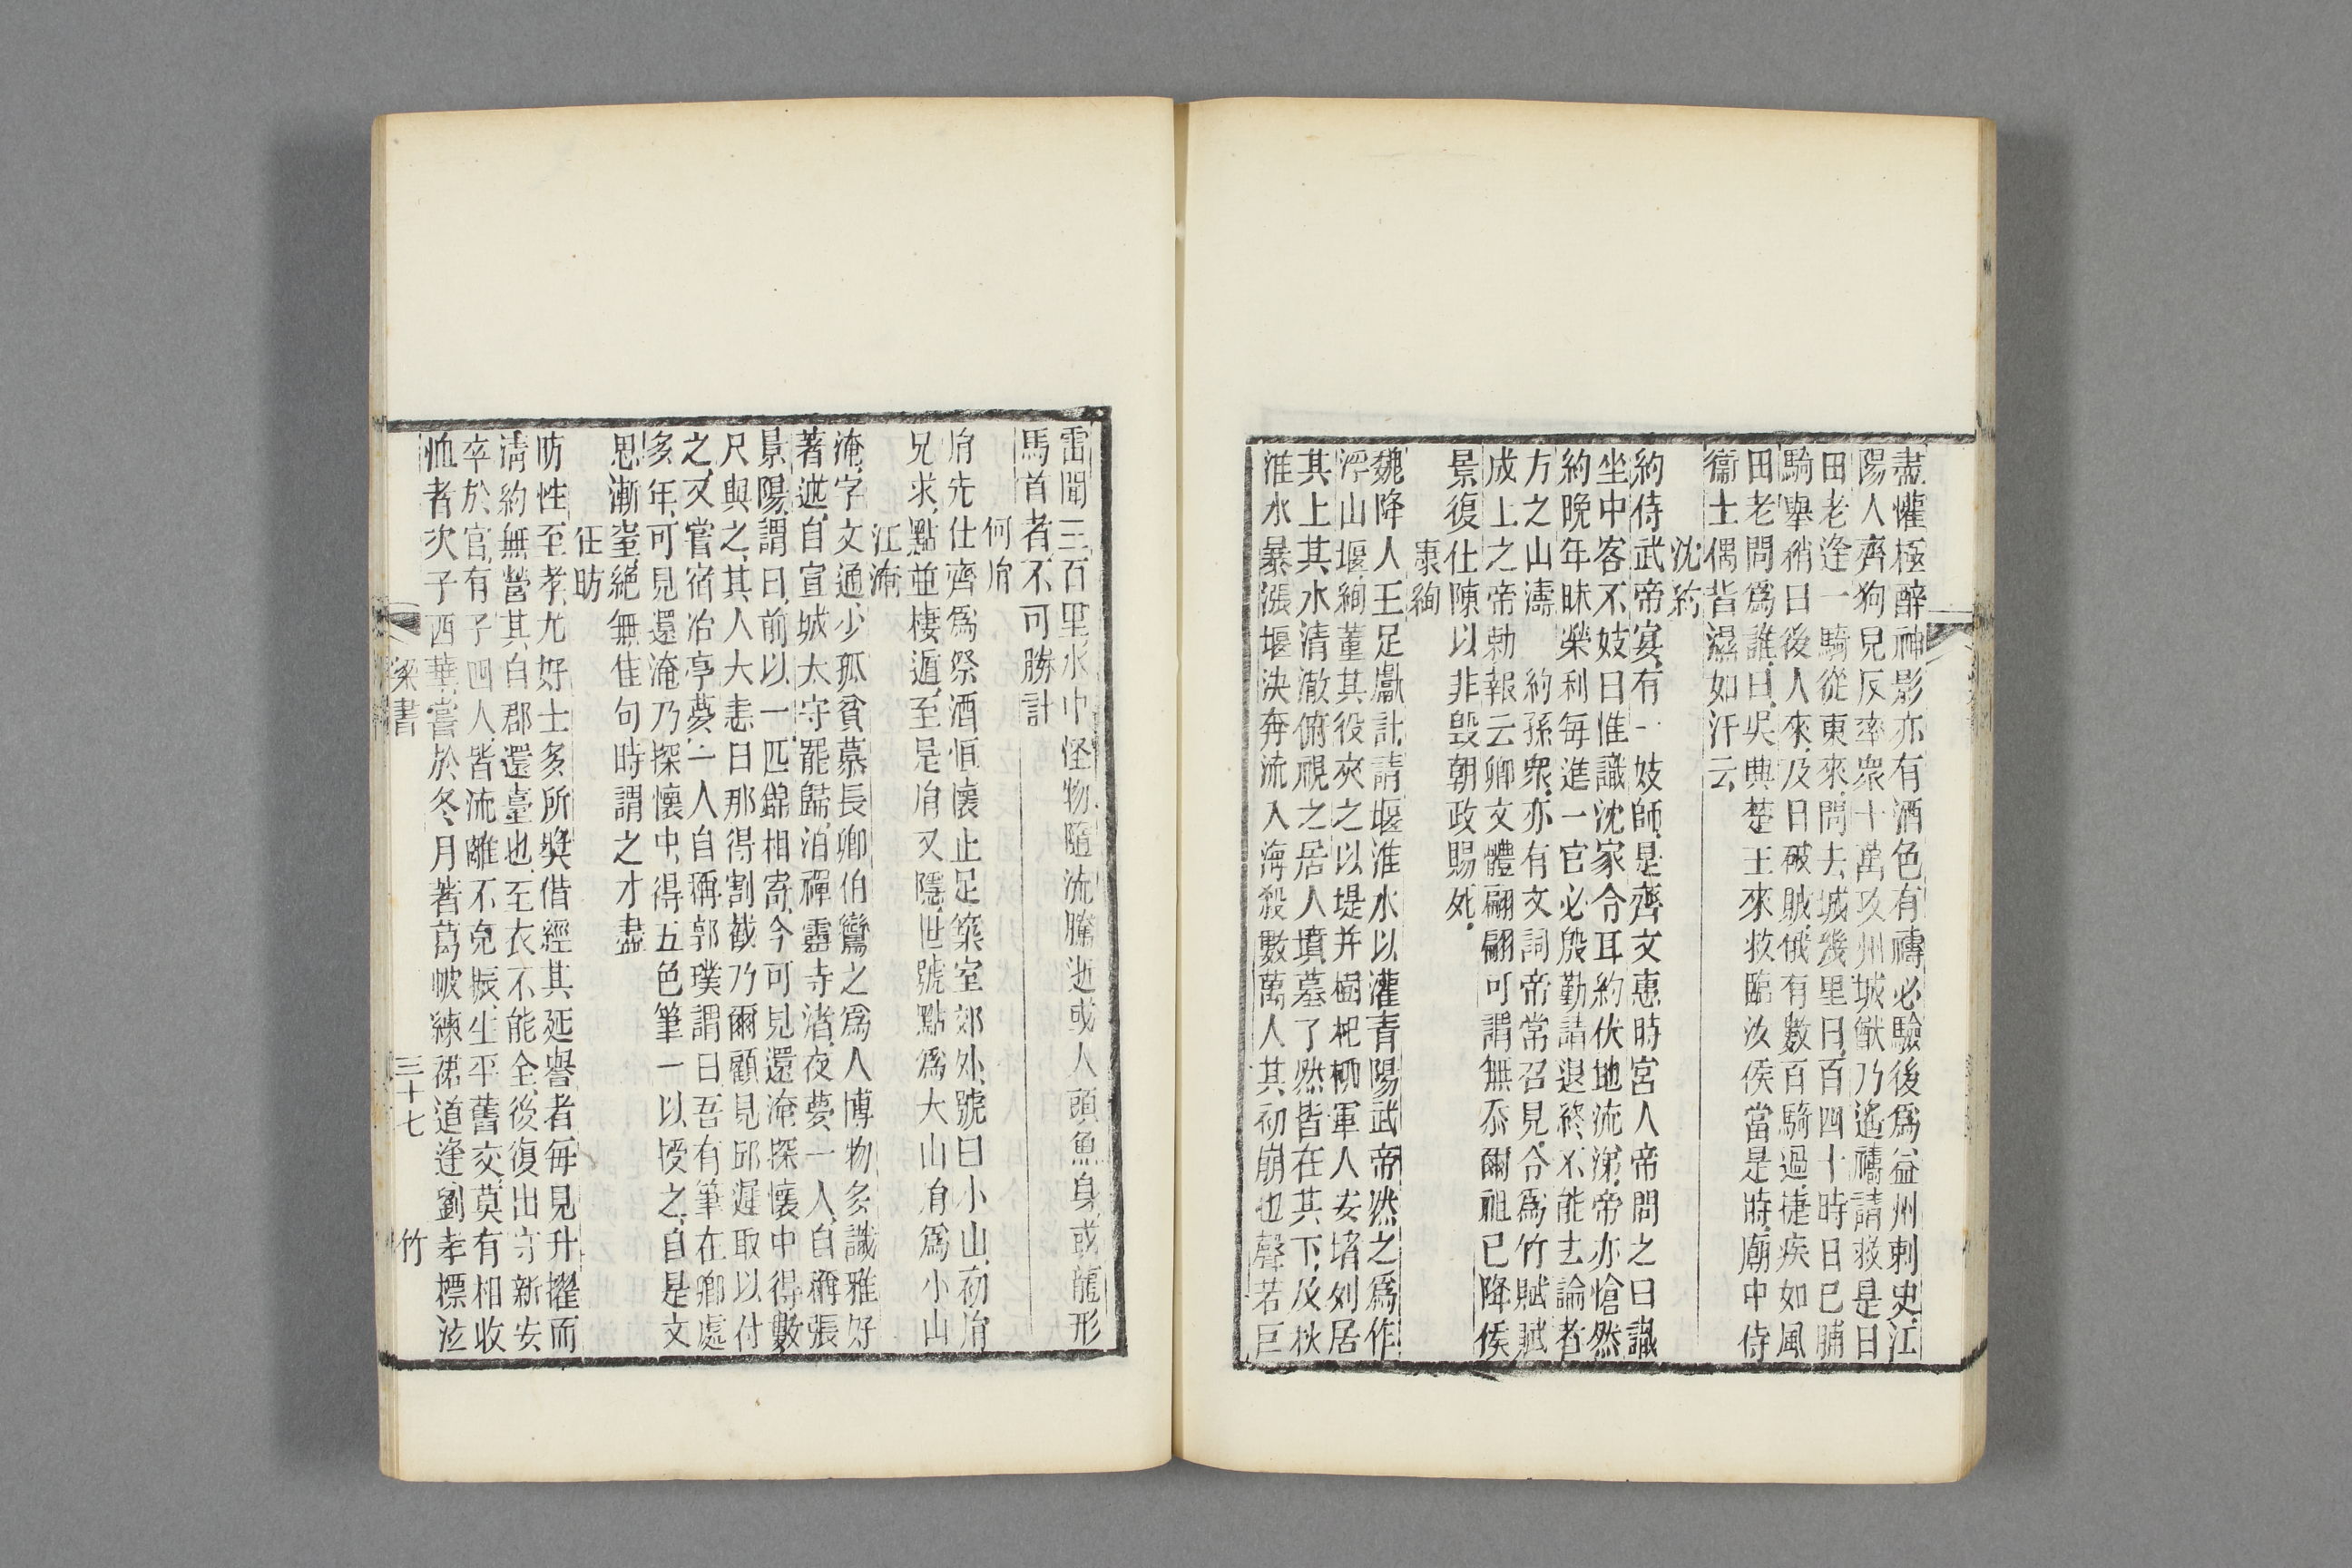 盡懽極醉神影亦有酒色有禱必驗後爲益州刺史江
陽人齊狗兒反率衆十萬攻州城猷乃遙禱請救是日
田老逢一騎從東來問去城幾里曰百四十時日巳晡
騎舉稍曰後人來及日破賊俄有數百騎過捷疾如風
田老問爲誰曰吳典楚王來救臨汝侯當是時廟中侍
衞士偶皆濕如汗云
沈約
約侍武帝宴有一妓師是齊文惠時宮人帝問之曰識
坐中客不妓曰惟識沈家令耳約伏地流涕帝亦愴然
約晚年昧榮利每進一官必殷勤請退終不能去論者
方之山濤　約孫衆亦有文詞帝常召見令爲竹賦賦
成上之帝勅報云卿文體翩翩可謂無忝爾祖已降侯
景復仕陳以非毀朝政賜死
康絢
魏降人王足獻計請堰淮水以灌青陽武帝然之爲作
浮山堰絢董其役夾之以堤并樹杞柳軍人安堵列居
其上其水清澈俯視之居人墳墓了然皆在其下及秋
淮水暴漲堰決奔流入海殺數萬人其初崩也聲若巨
雷聞三百里水中怪物隨流騰逝或人頭魚身或龍形
馬首者不可勝計
何胤
胤先仕齊爲祭酒恒懷止足築室郊外號曰小山初胤
兄求點並棲遁至是胤又隱世號點爲大山胤爲小山
江淹
淹字文通少孤貧慕長卿伯鸞之爲人博物多識雅好
著述自宣城太守罷歸泊禪靈寺渚夜夢一人自稱張
景陽謂曰前以一匹錦相寄今可見還淹探懷中得數
尺與之其人大恚曰那得割截乃爾顧見邱遲取以付
之又嘗宿冶亭夢一人自稱郭璞謂曰吾有筆在卿處
多年可見還淹乃探懷中得五色筆一以授之自是文
思漸蹇絕無佳句時謂之才盡
任昉
昉性至孝尤好士多所獎借經其延譽者每見升擢而
淸約無營其自郡還臺也至衣不能全後復出守新安
卒於官有子四人皆流離不克振生平舊交莫有相收
恤者次子西華嘗於冬月著葛帔練裙道逢劉孝標泫
梁書　三十七　竹